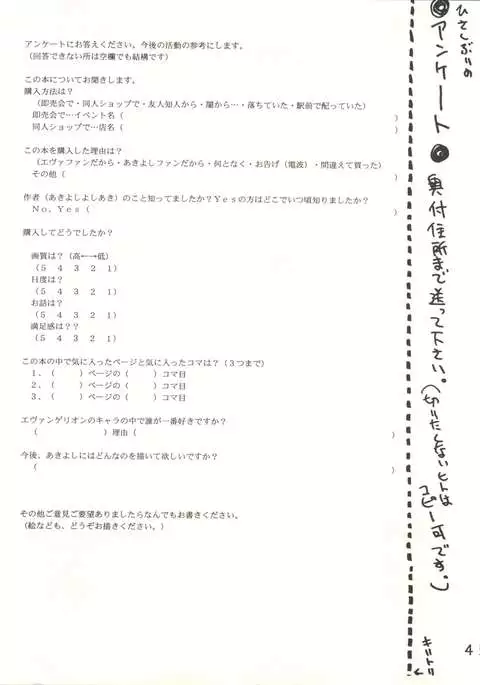 ひさしぶりの
◎アンケート◎
奥付住所まで送って下さい。(切りたくないヒトは
コピー可です。)
アンケートにお答えください。今後の活動の参考にします。
(回答できない所は空欄でも結構です)
この本についてお聞きします。
購入方法は?
(即売会で・同人ショップで・友人知人から・闇から…・落ちていた・駅前で配っていた)
即売会で…イベント名( )
同人ショップで…店名( )
この本を購入した理由は?
(エヴァファンだから・あきよしファンだから・何となく・お告げ(電波)・間違えて買った)
その他( )
作者(あきよしよしあき)のこと知ってましたか?Yesの方はどこでいつ頃知りましたか?
No、Yes( )
購入してどうでしたか?
画質は?(高←→低)
(5 4 3 2 1)
H度は?
(5 4 3 2 1)
お話は?
(5 4 3 2 1)
満足感は??
(5 4 3 2 1)
この本の中で気に入ったページと気に入ったコマは?(3つまで)
1、( )ページの( )コマ目
2、( )ページの( )コマ目
3、( )ページの( )コマ目
エヴァンゲリオンのキャラの中で誰が一番好きですか?
( )理由( )
今後、あきよしにはどんなのを描いて欲しいですか?
( )
その他ご意見ご要望ありましたらなんでもお書きください。
(絵なども、どうぞお描きください。)
キリトリ